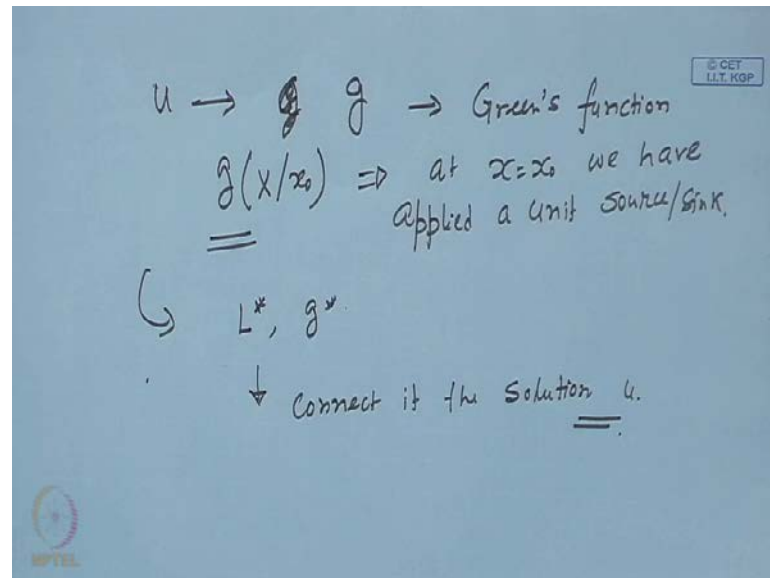 © CET
I.I.T. KGP
u → g → Green's function
g(x/x₀) ⇒ at x=x₀ we have
applied a unit source/sink.
L*, g*
↓ connect it the solution u.
NPTEL